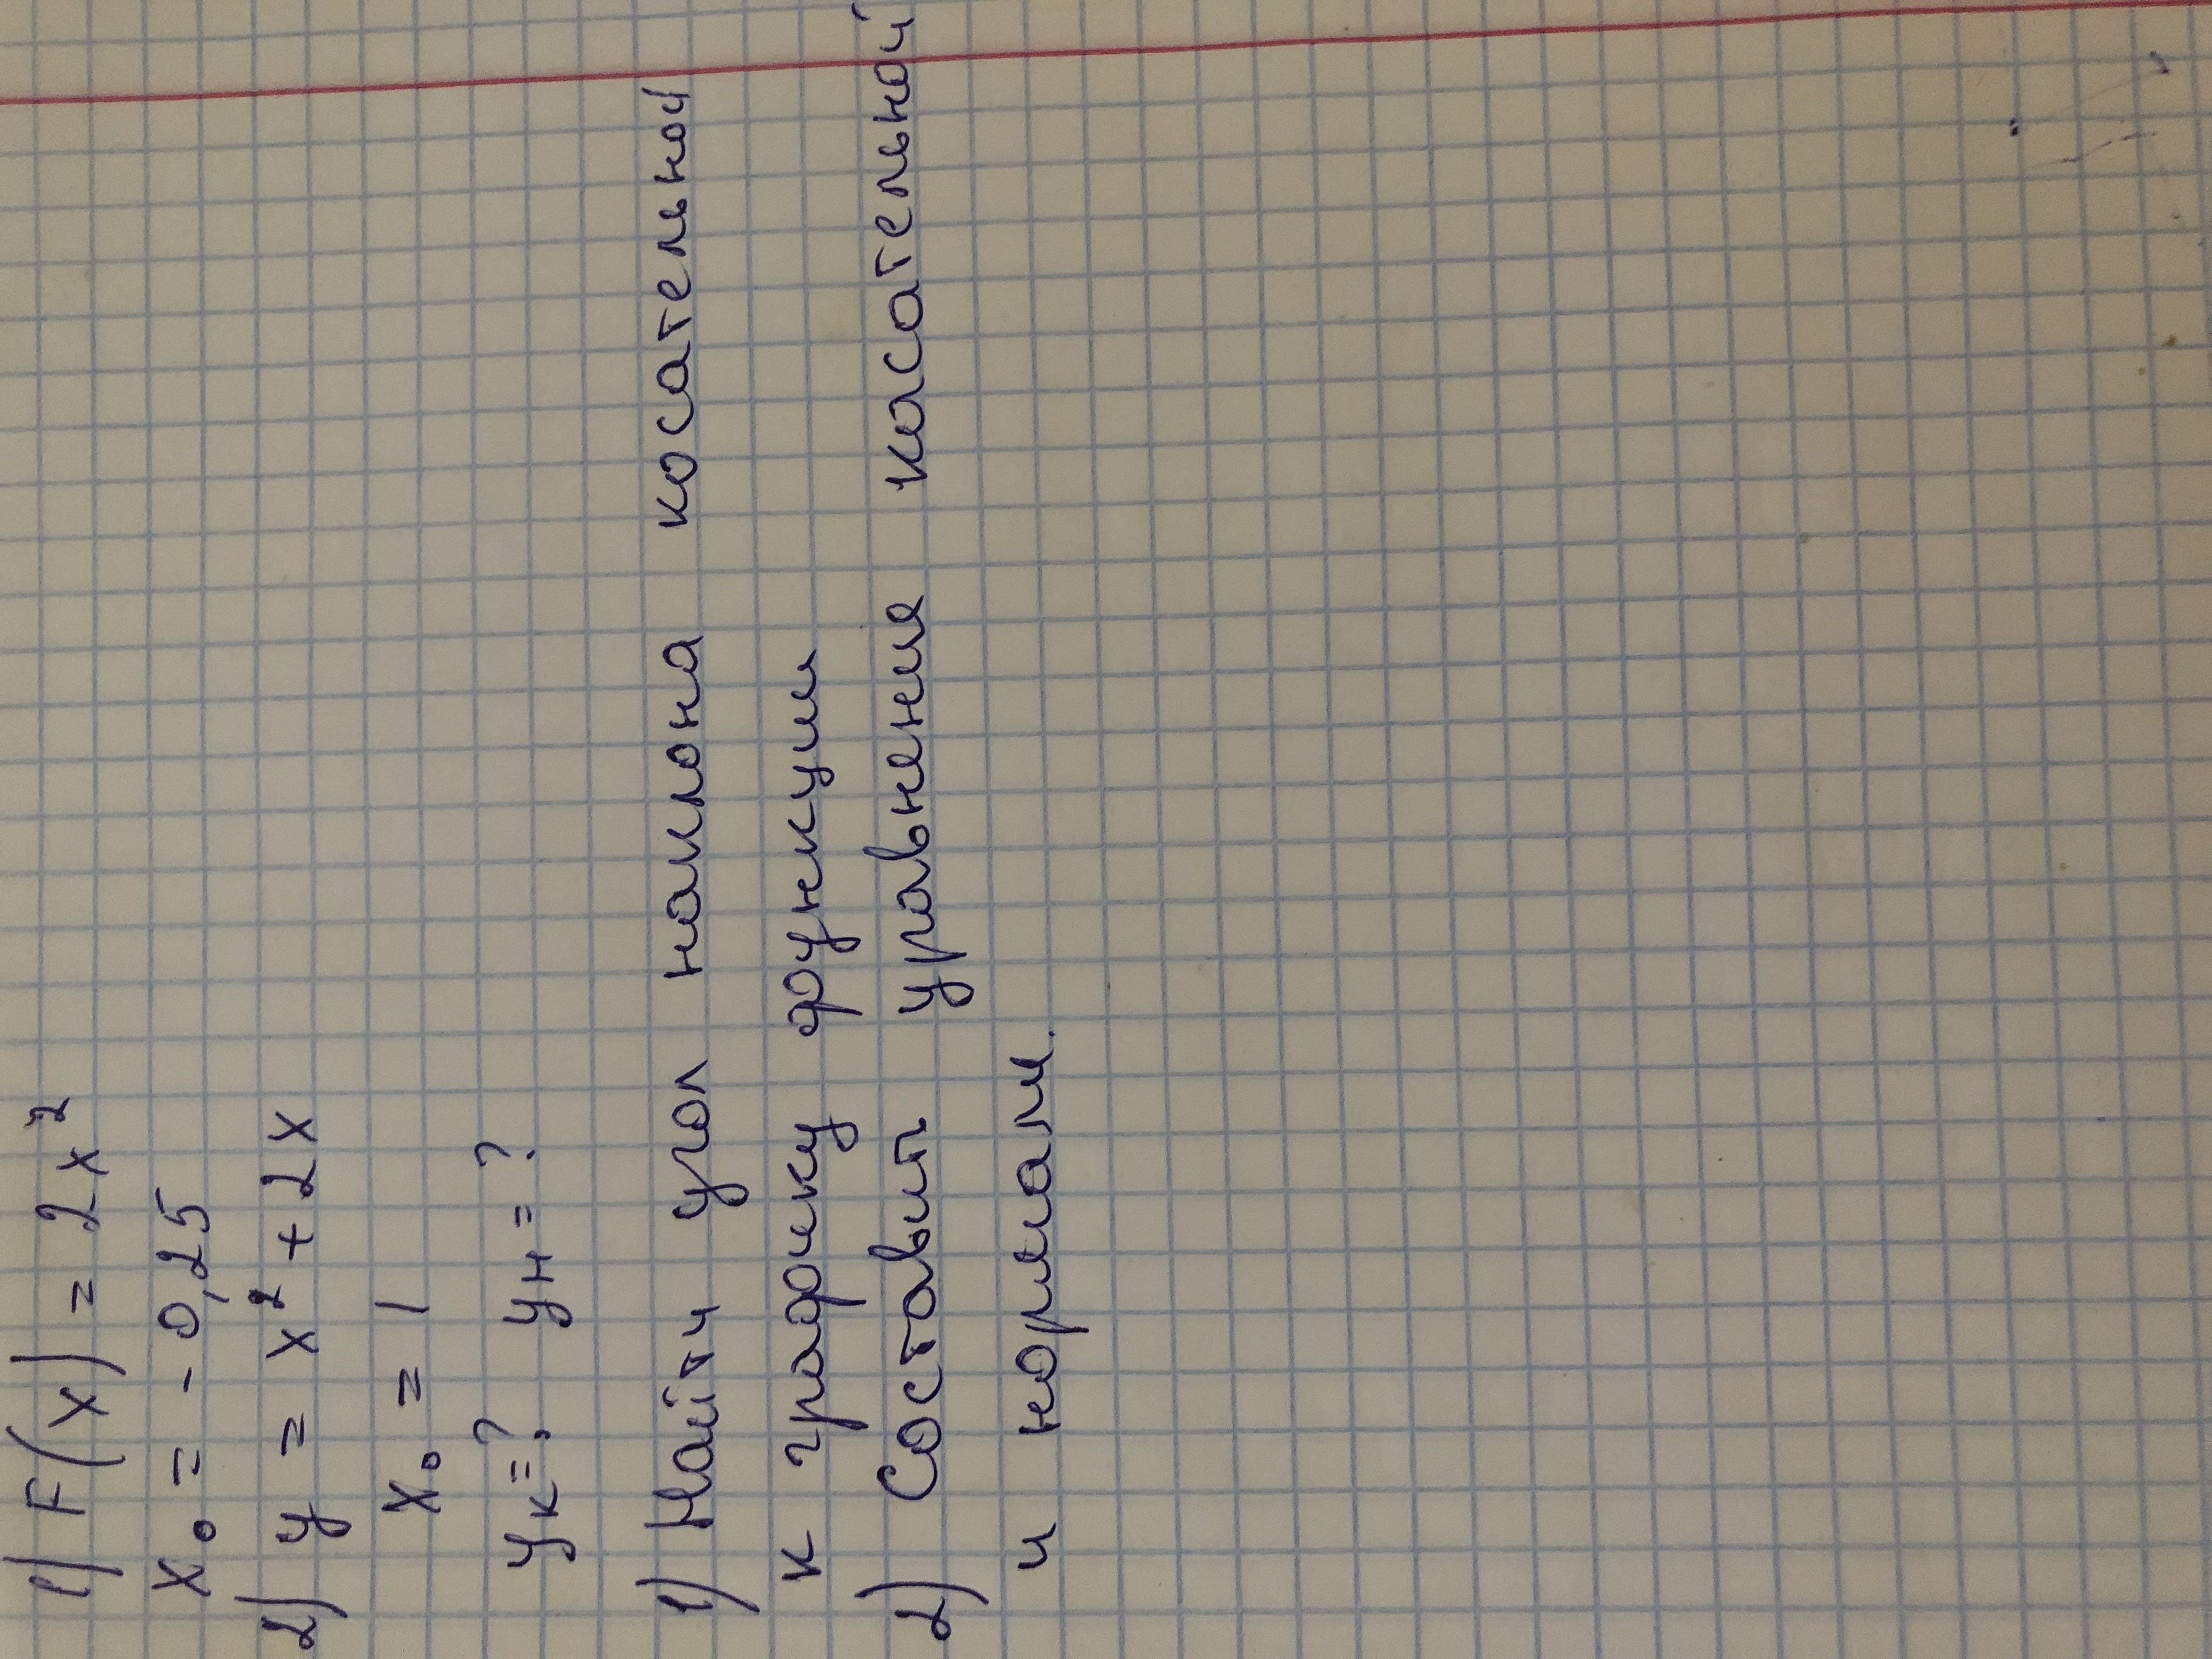 1) F(x) = 2x²
x₀ = - 0,25
2) y = x² + 2x
x₀ = 1
yк=? yн=?
1) Найти угол наклона косательной
к графику функции
2) Составит уравнение касательной
и нормали.